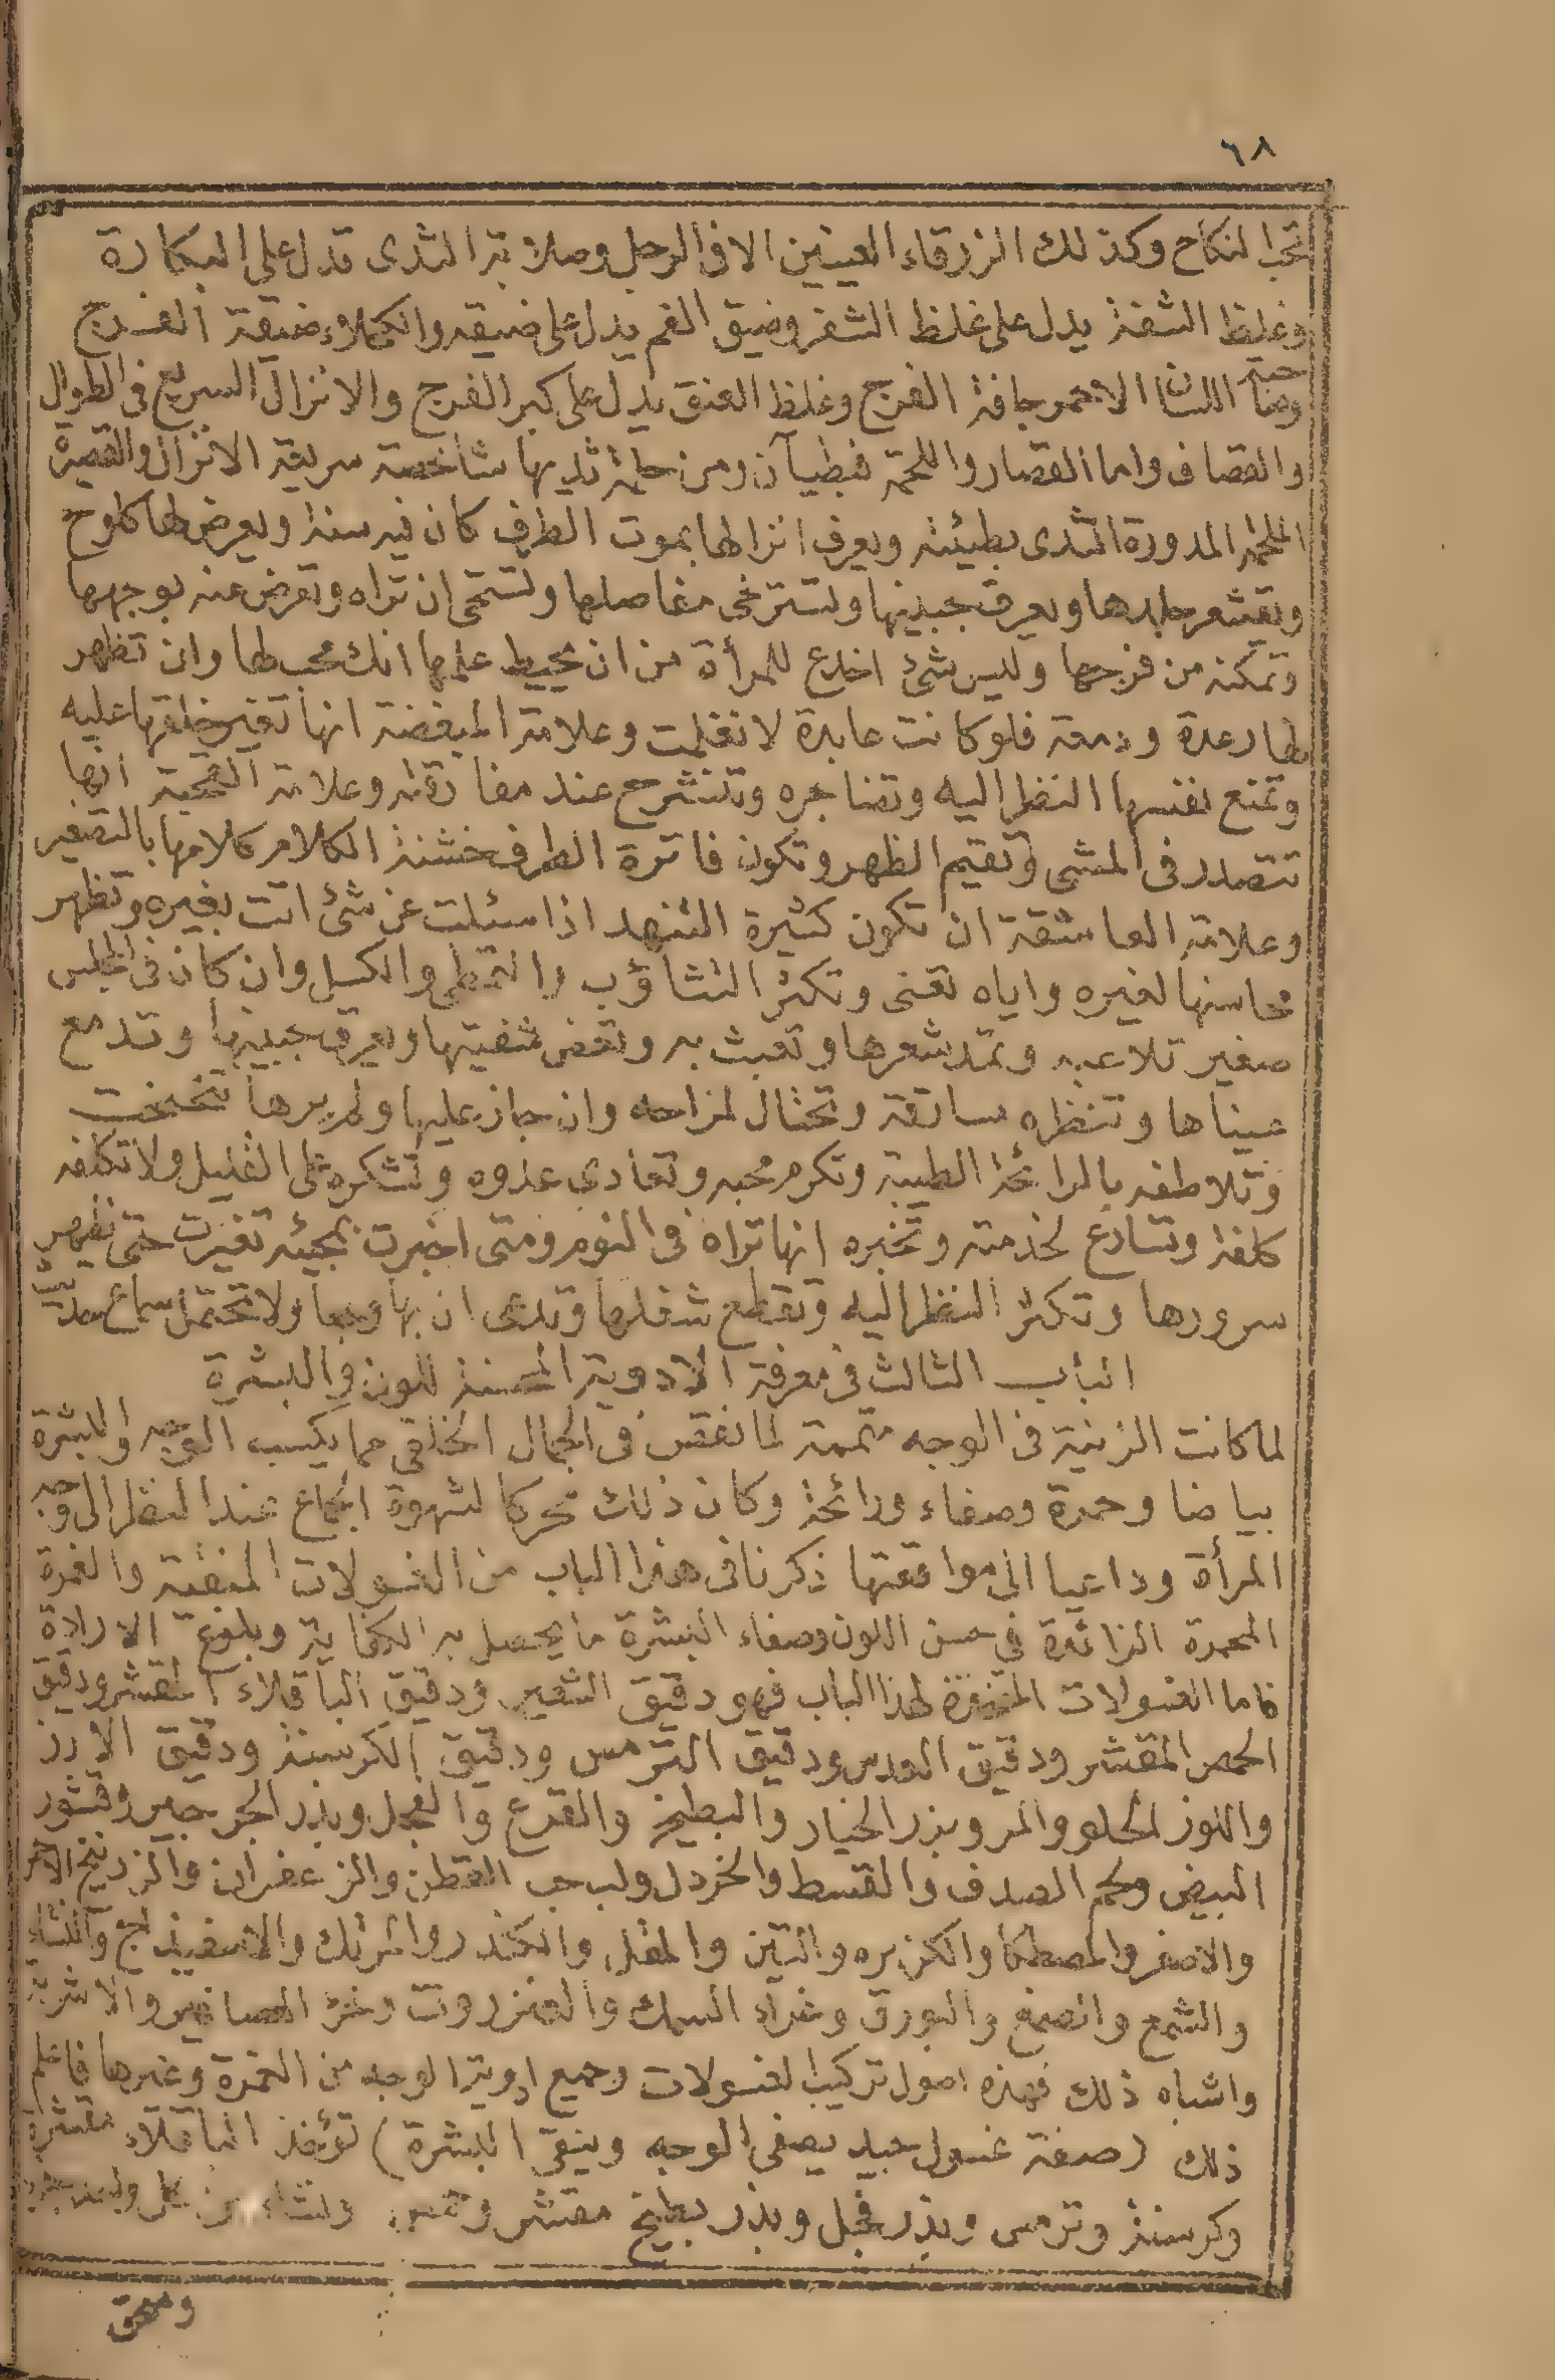 ٦٨
تحب النكاح وكذلك الزرقاء العينين الا فى الرجل وصلابة الثدى تدل على البكارة
وغلظ الشفة يدل على غلظ الشفر وضيق الفم يدل على ضيقه والكحلاء ضيقة الفرج
وصاحبة اللسان الاحمر جافة الفرج وغلظ العنق يدل على كبر الفرج والانزال السريع فى الطوال
والقصاف واما القصار واللحمة فبطيآن ومن حلمة ثديها شاخصة سريعة الانزال والقصيرة
الملحمة المدورة الثدى بطيئته ويعرف انزالها بموت الطرف كان فيه سنة ويعرض لها كلوح
ويقشعر جلدها ويعرق جبينها وتسترخى مفاصلها وتستحى ان تراه وتعرض عنه بوجهها
وتمكنه من فرجها وليس شئ اخدع للمرأة من ان يحيط علمها انك محب لها وان تظهر
لها رعدة ودمعة فلو كانت عابدة لانغلبت وعلامة المبغضة انها تغير خلقها عليه
وتمنع نفسها النظر اليه وتضاجره وتنشرح عند مفارقته وعلامة القحبة انها
تتصدر فى المشى وتقيم الظهر وتكون فاترة الطرف خشنة الكلام كلامها بالتصغير
وعلامة العاشقة ان تكون كثيرة التنهد اذا سئلت عن شئ اتت بغيره وتظهر
محاسنها لغيره واياه تعنى وتكثر التثاؤب والتمطى والكسل وان كان فى المجلس
صغير تلاعبه وتمد شعرها وتعبث به وتعض شفتيها ويعرق جبينها وتدمع
عيناها وتنظره مسارقة وتحتال لمزاحه وان جاز عليها ولم يرها تنحنحت
وتلاطفه بالرائحة الطيبة وتكرم محبه وتعادى عدوه وتشكره على القليل ولا تكلفه
كلفة وتسارع لخدمته وتخبره انها تراه فى النوم ومتى اخبرت بمجيئه تغيرت حتى يظهر
سرورها وتكثر النظر اليه وتقطع شغلها وتدعى ان بها وجعا ولا تحتمل سماع
الباب الثالث فى معرفة الادوية المحسنة للون والبشرة
لما كانت الزينة فى الوجه متممة لما نقص فى الجمال الخلقى مما يكسب الوجه والبشرة
بياضا وحمرة وصفاء ورائحة وكان ذلك محركا لشهوة الجماع عند النظر الى وجه
المرأة وداعيا الى مواقعتها ذكرنا فى هذا الباب من الغسولات المنقية والغمرة
المحمرة الزائدة فى حسن اللون وصفاء البشرة ما يحصل به الكفاية وبلوغ الارادة
فاما الغسولات المتخذة لهذا الباب فهو دقيق الشعير ودقيق الباقلاء المقشر ودقيق
الحمص المقشر ودقيق العدس ودقيق الترمس ودقيق الكرسنة ودقيق الارز
واللوز الحلو والمر وبذر الخيار والبطيخ والقرع والفجل وبذر الجرجير وقشور
البيض ولحم الصدف والقسط والخردل ولب حب القطن والزعفران والزرنيخ الاحمر
والاصفر والمصطكا والكزبره والتين والمقل والكندر والمرتك والاسفيذاج والنشاء
والشمع والصمغ والبورق وغراء السمك والعنزروت وخرء العصافير والاشربة
واشباه ذلك فهذه اصول تركيب الغسولات وجميع ادوية الوجه من الغمرة وغيرها فاعلم
ذلك (صفة غسول جيد يصفى الوجه وينقى البشرة) تؤخذ الباقلاء مقشرة
وكرسنة وترمس وبذر فجل وبذر بطيخ مقشر وحمص ونشاء من كل واحد جزء